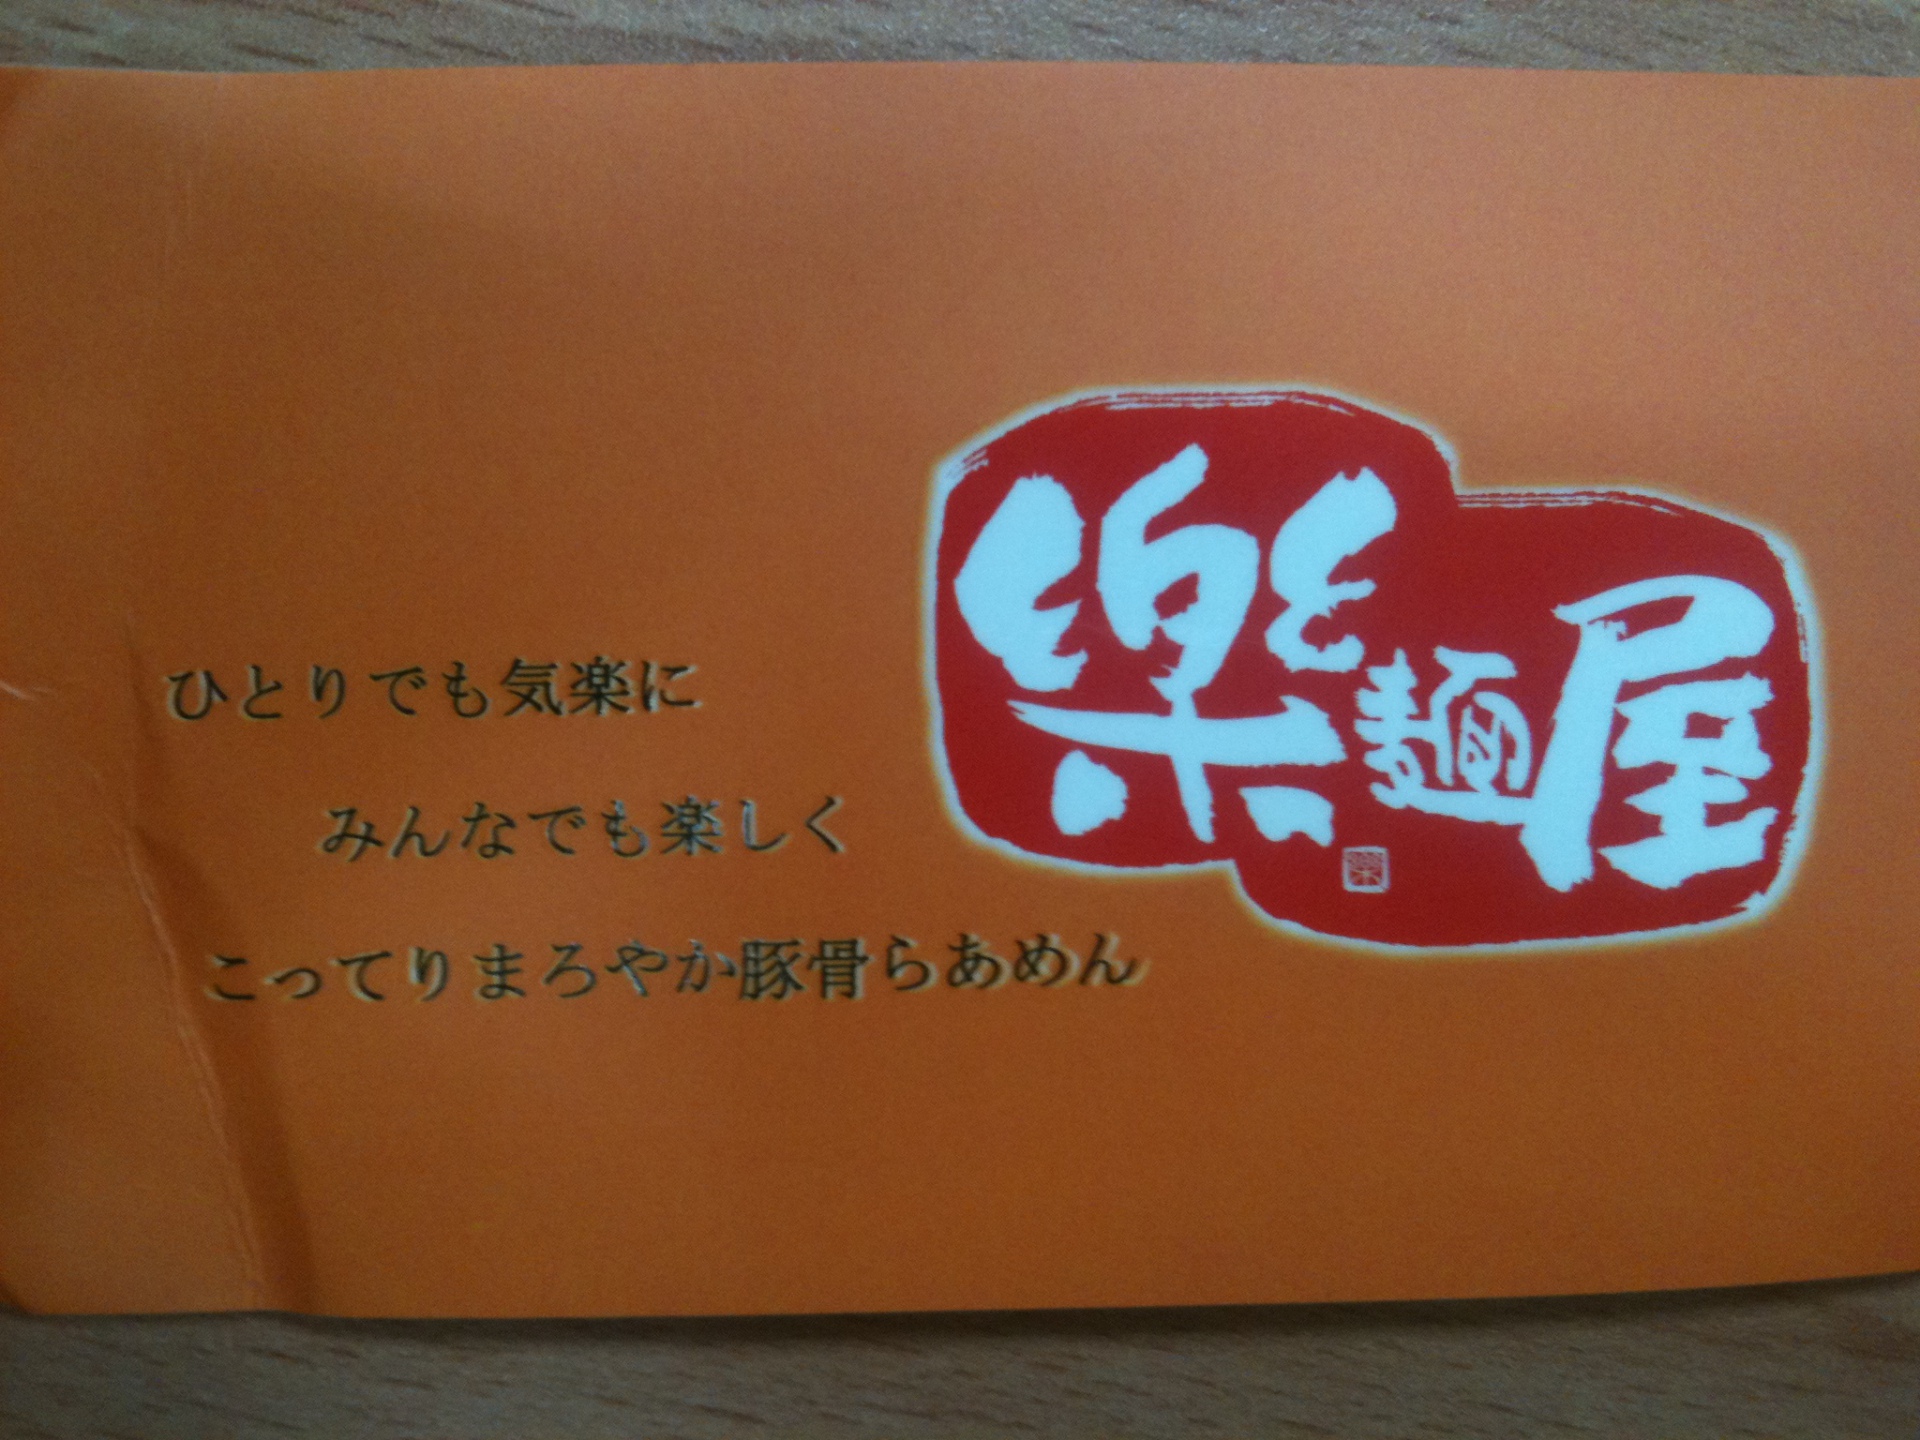 樂麺屋
ひとりでも気楽に
みんなでも楽しく
こってりまろやか豚骨らあめん